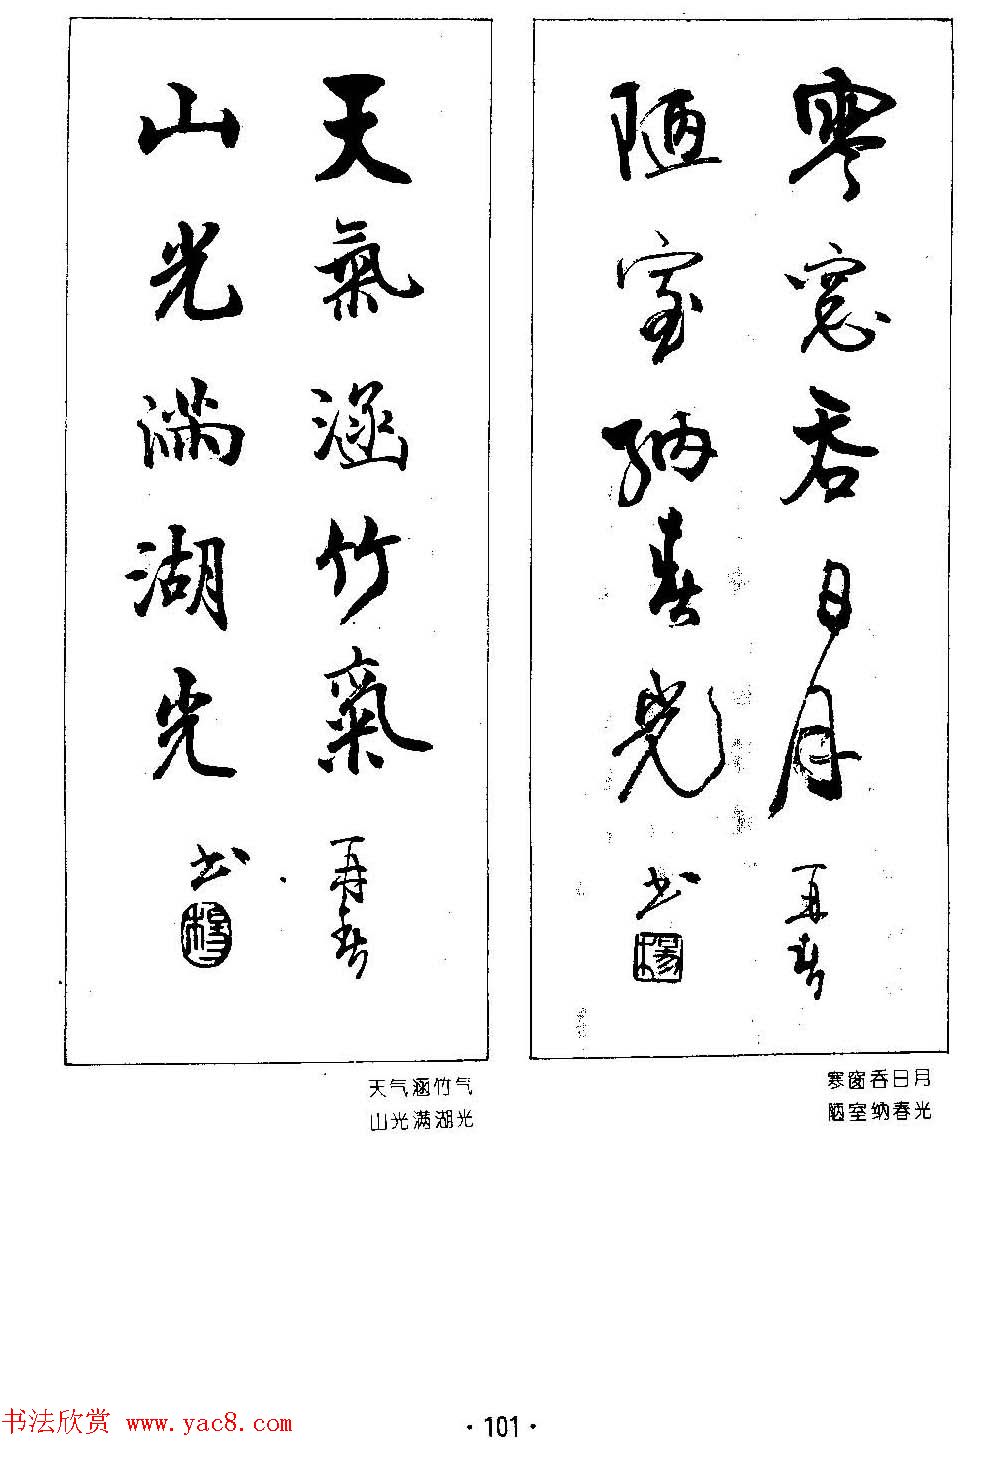 寒窓吞日月
再春
陋室納春光
书
楊
寒窗吞日月
陋室纳春光
天氣涵竹氣
再春
山光滿湖光
书
天气涵竹气
山光满湖光
书法欣赏 www.yac8.com
·101·